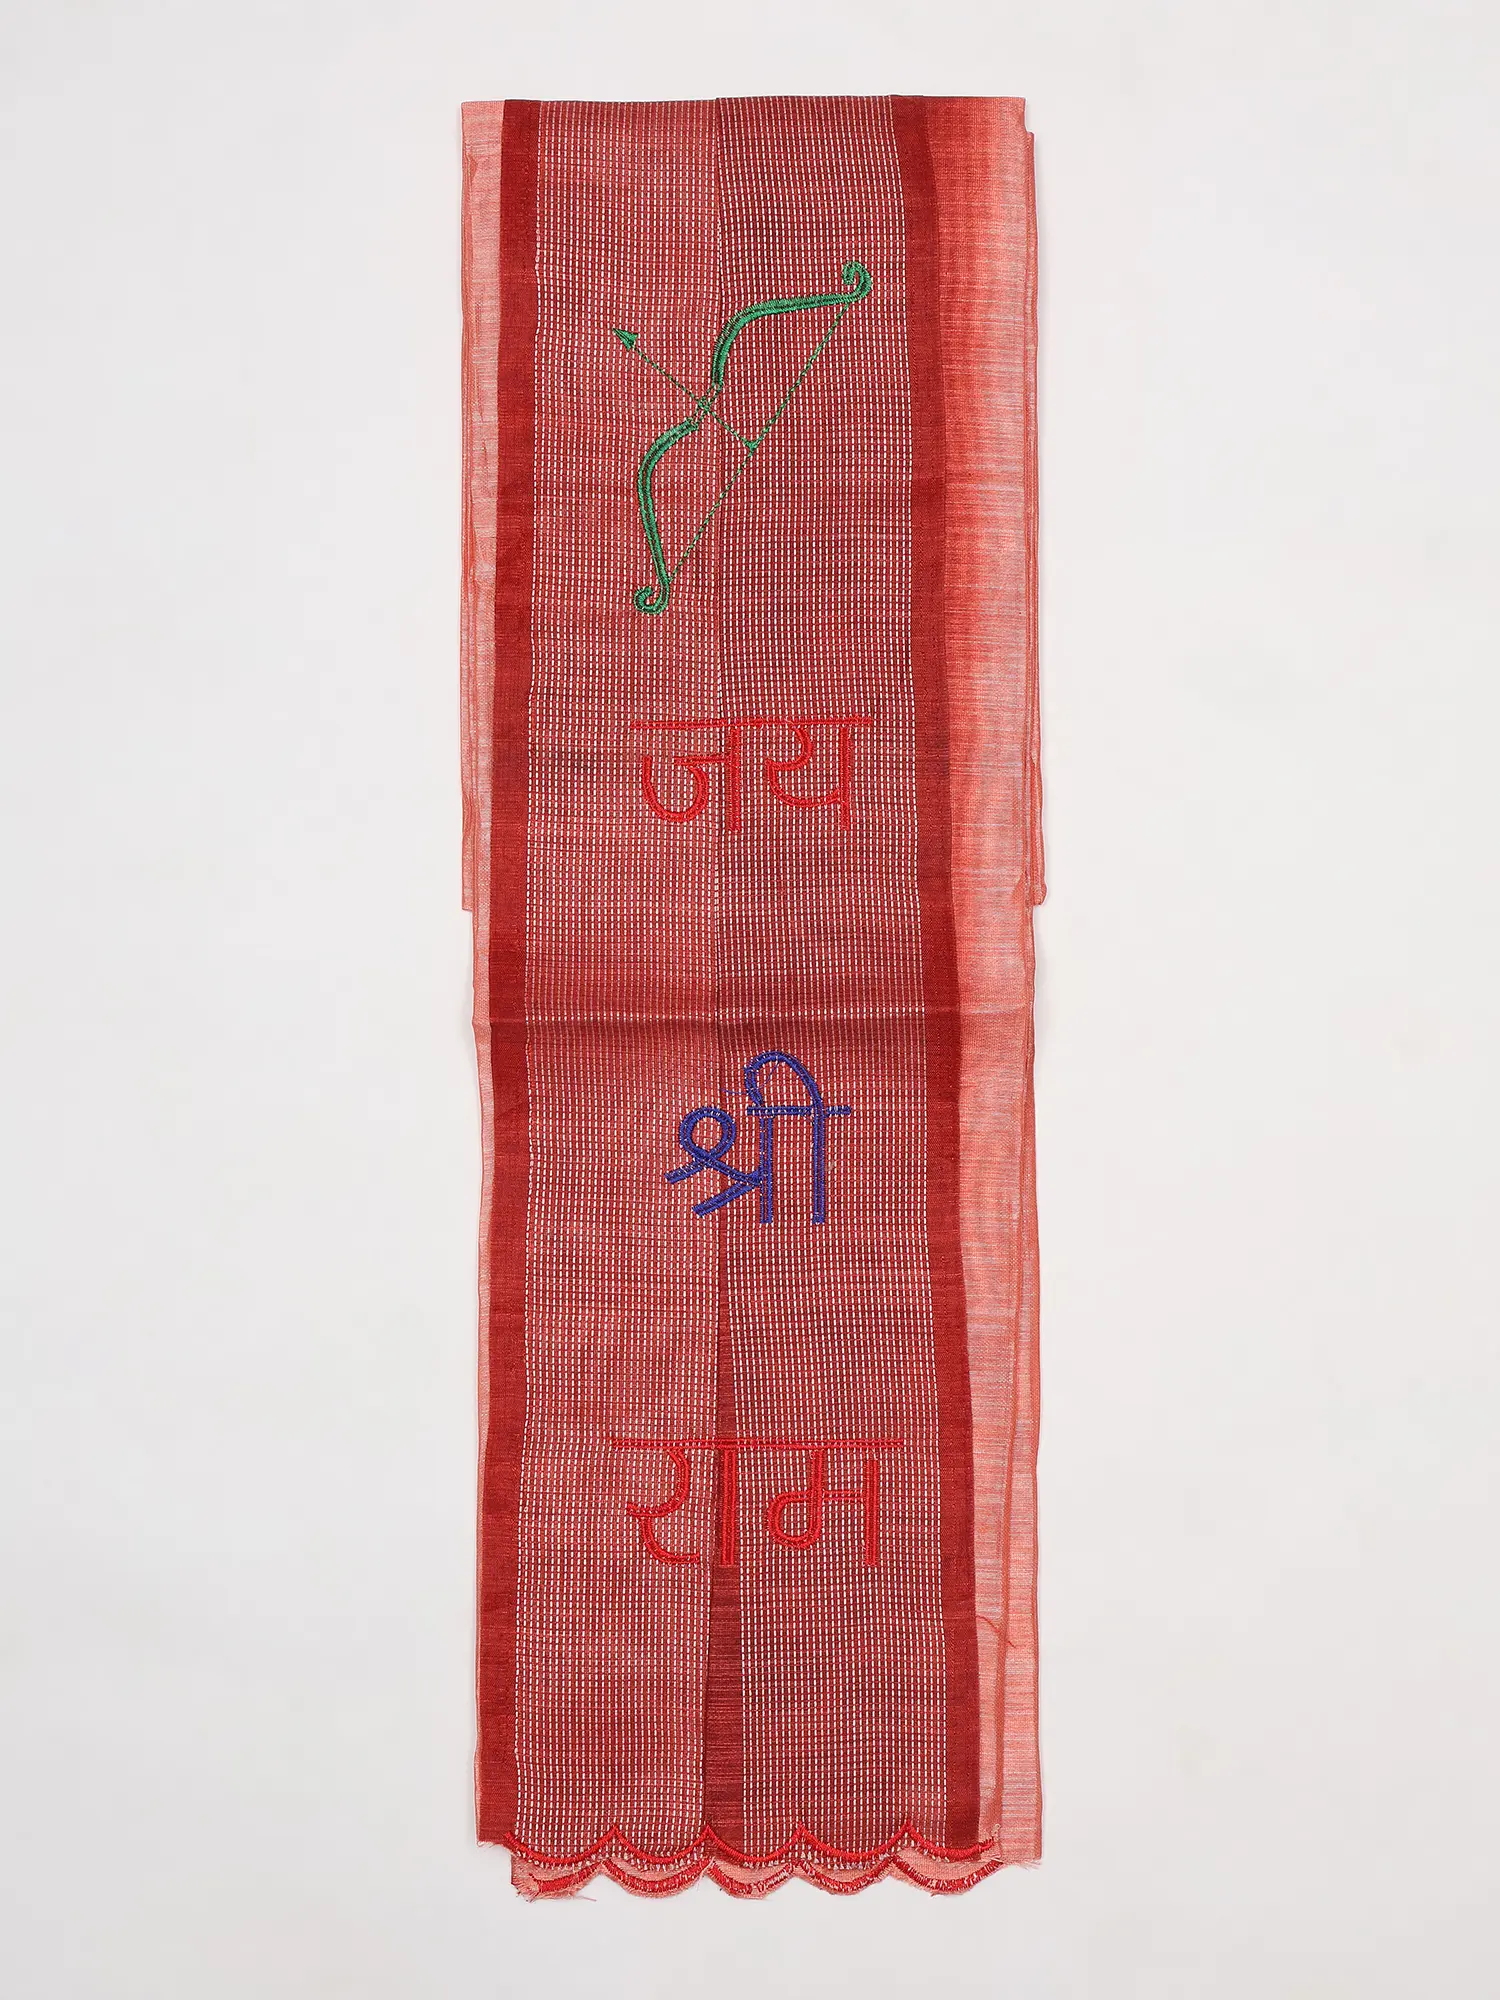 जय
श्री
राम